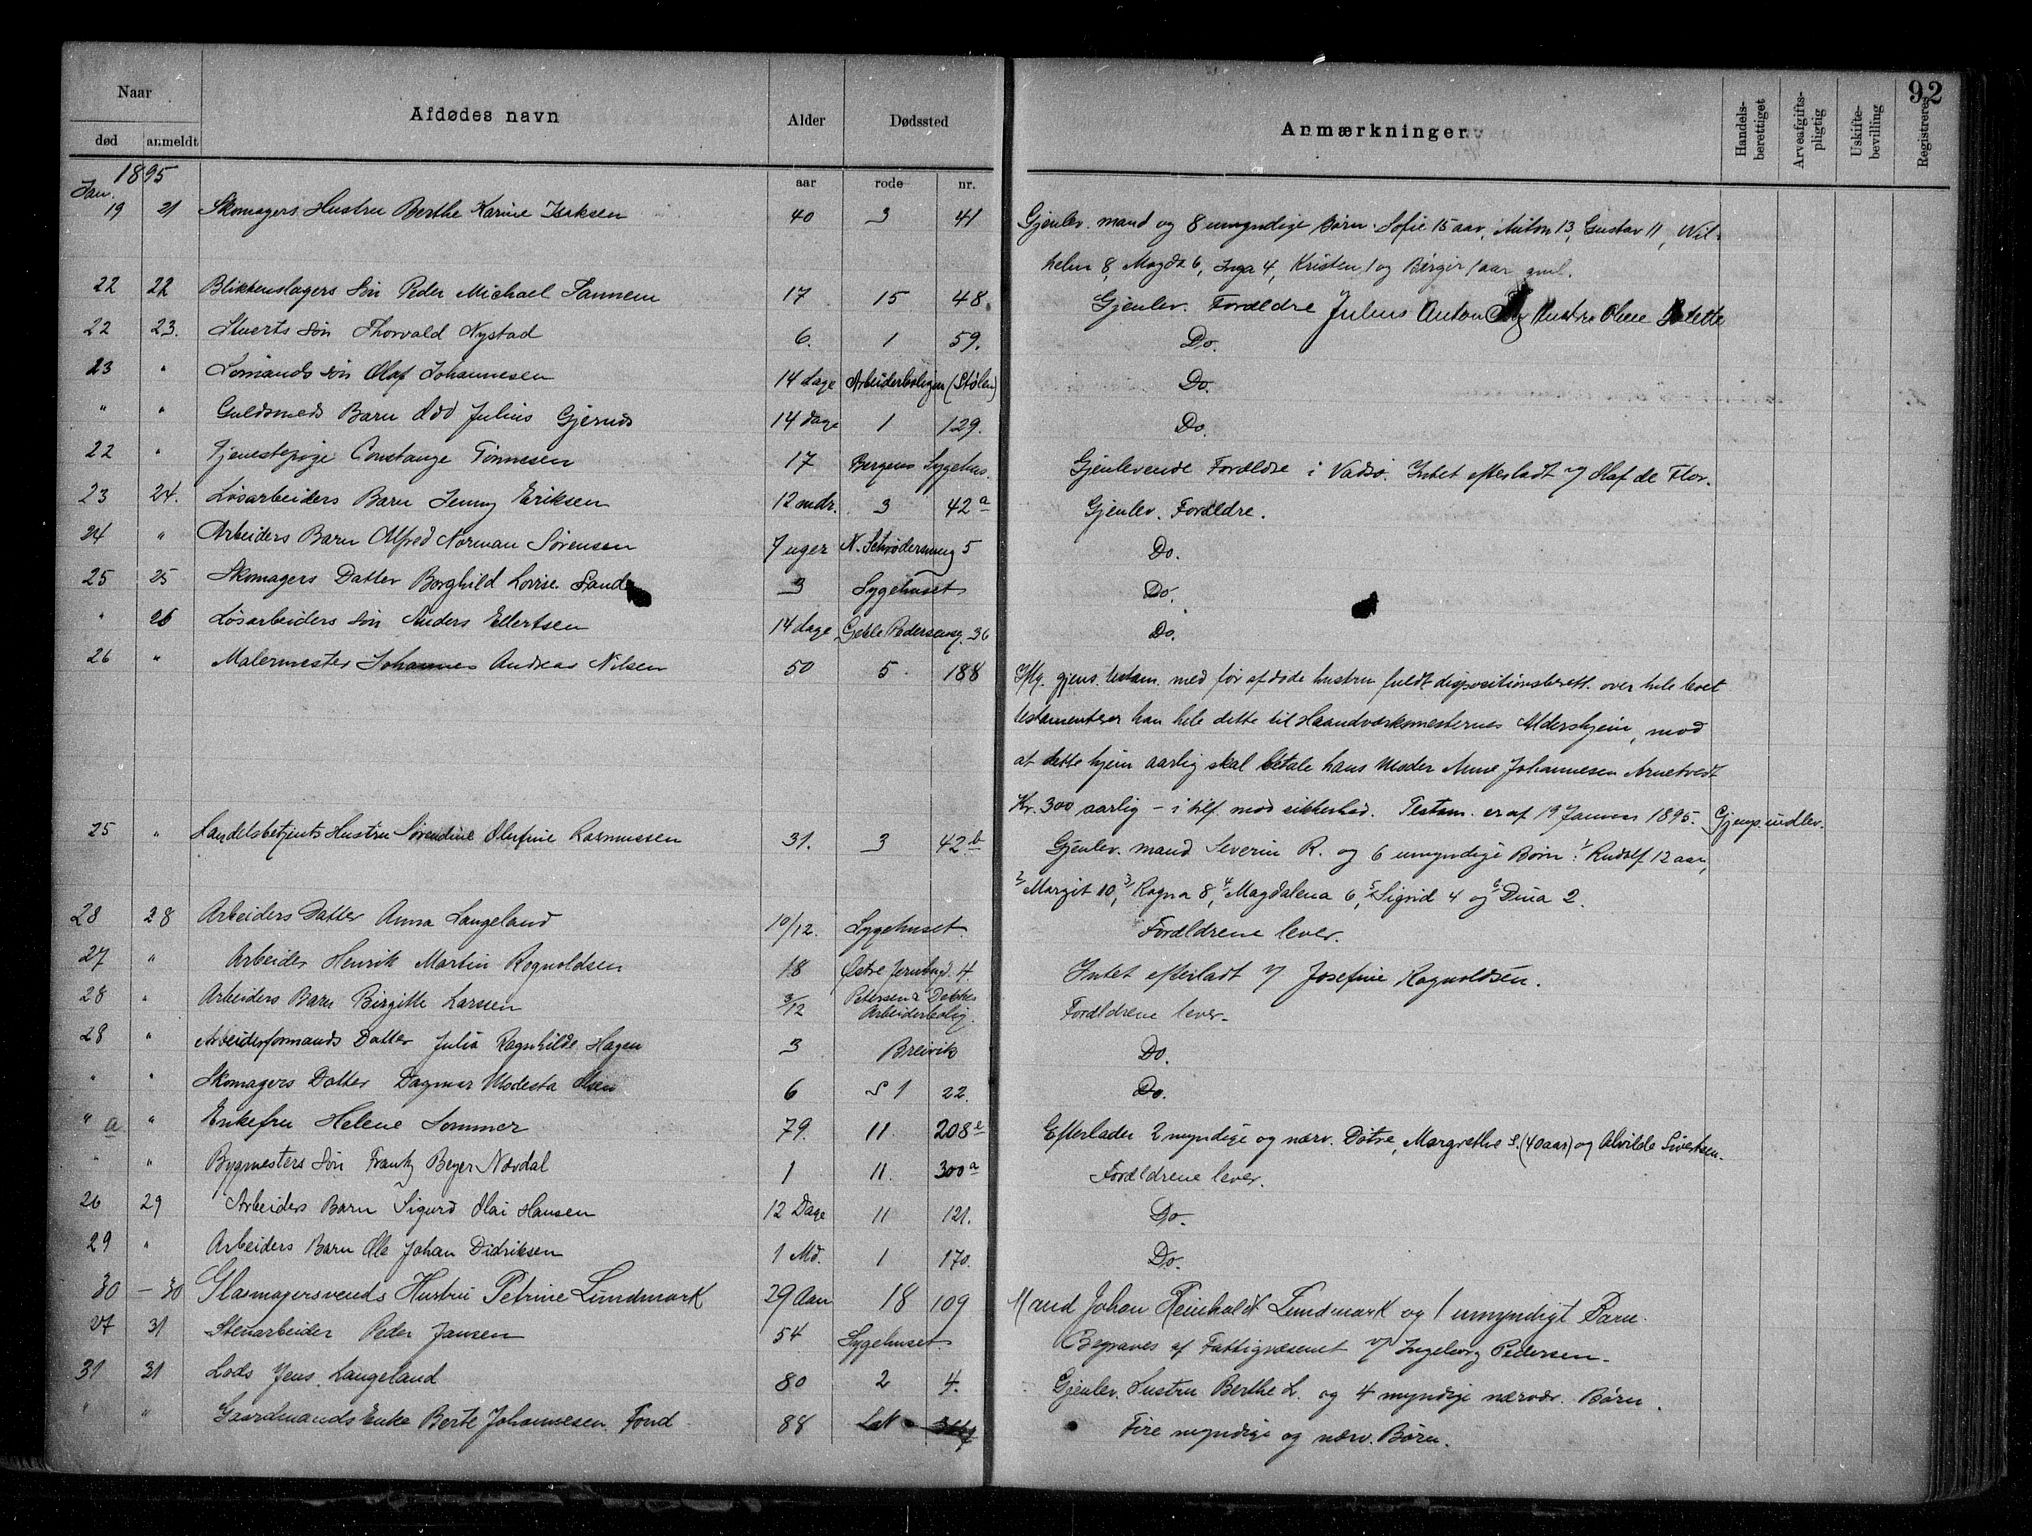 92
Naar
Afdødes navn
Alder
Dødssted
Anmærkninger
Handels-berettiget
Arveafgifts-pligtig
Uskifte-bevilling
Registreret
død anmeldt
aar rode nr.
1895
Jan.
19 21 Skomagers Hustru Berthe Karine Isaksen 40 3 41 Gjenlev. mand og 8 umyndige Børn: Sofie 15 aar, Anton 13, Gustav 11, Wil-
helm 8, Magda 6, Inga 4, Kristen 1 og Birger 1 aar gml.
22 22 Blikkenslagers Søn Peder Michael Sannem 17 15 48 Gjenlev. Forældre Julius Anton og Hustru Oline
22 23. Stuerts Søn Thorvald Nystad 6. 1 59. Do.
23 " Søn Olaf Johannesen 14 dage Arbeiderboligen (Stølen) Do.
" " Guldsmeds Barn Odd Julius 14 dage 1 129. Do.
22 " Tjenestepige Constange Tønnesen 17 Bergens Sygehus. Gjenlevende Forældre i Vadsø. Intet efterladt v/ Olaf de Flor.
23 24. Løsarbeiders Barn Jenny Eriksen 12 mdr. 3 42 a Gjenlev. Forældre.
24 " Arbeiders Barn Alfred Norman Sørensen 7 uger N. Schrødersmug 5 Do.
25 25 Skomagers Datter Borghild Lovise Sande 3 Sygehuset Do.
" 26 Løsarbeiders Søn Anders Ellertsen 14 dage Geble Pedersensg. 36 Do.
26 " Malermester Johannes Andreas Nilsen 50 5 188 Iflg. gjens. testam. med før afdøde hustru fuldt dispositionsberett. over hele boet
testamenterer han hele dette til Haandværksmesternes Aldershjem, mod
at dette hjem aarlig skal betale hans Moder Anne Johannesen Arnetvedt
Kr. 300 aarlig – i tilf. mod sikkerhed. Testam. er af 19 Januar 1895. Gjenp. indlev.
25 " Handelsbetjents Hustru Sørendine Olufine Rasmussen 31. 3 42 b Gjenlev. mand Severin R. og 6 umyndige Børn: 1/ Rudolf 12 aar,
2/ Margit 10, 3/ Ragna 8, 4/ Magdalena 6, 5/ Sigrid 4 og 6/ Dina 2.
28 28 Arbeiders Datter Anna Langeland 10/12. Sygehuset. Forældrene lever.
27 " Arbeider Henrik Martin Rognoldsen 18 Østre 4 Intet efterladt v/ Josefine Rognoldsen.
28 " Arbeiders Barn Birgitte Larsen 3/12 Petersen & Dekkes Arbeiderbolig. Forældrene lever.
28 " Arbeiderformands Datter Julia Ragnhilde Hagen 3 Breivik Do.
" " Skomagers Datter Dagmar Modesta Olsen 6 S 1 22. Do.
" a " Enkefru Helene Sommer 79. 11. 208 e Efterlader 2 myndige og nærv. Døtre, Margrethe S. (40 aar) og Alvilde Sivertsen.
" " Bygmesters Søn Frantz Beyer Nævdal 1 11. 300 a Forældrene lever.
26 29 Arbeiders Barn Sigurd Olai Hansen 12 Dage 11 121. Do.
29 " Arbeiders Barn Ole Johan Didriksen 1 Md. 1 170. Do.
30 – 30 Glasmagersvends Hustru Petrine Lundmark 29 Aar 18 109 Mand Johan Reinholdt Lundmark og 1 umyndigt Barn.
27 31 Stenarbeider Peder Jansen 54 Sygehuset Begraves af Fattigvæsenet v/ Ingeborg Pedersen.
31 31 Lods Jens Langeland 80 2 4. Gjenlev. Hustru Berthe L. og 4 myndige nærvær. Børn.
" " Gaardmands Enke Berte Johannesen Fond 88 Fire myndige og nærv. Børn.